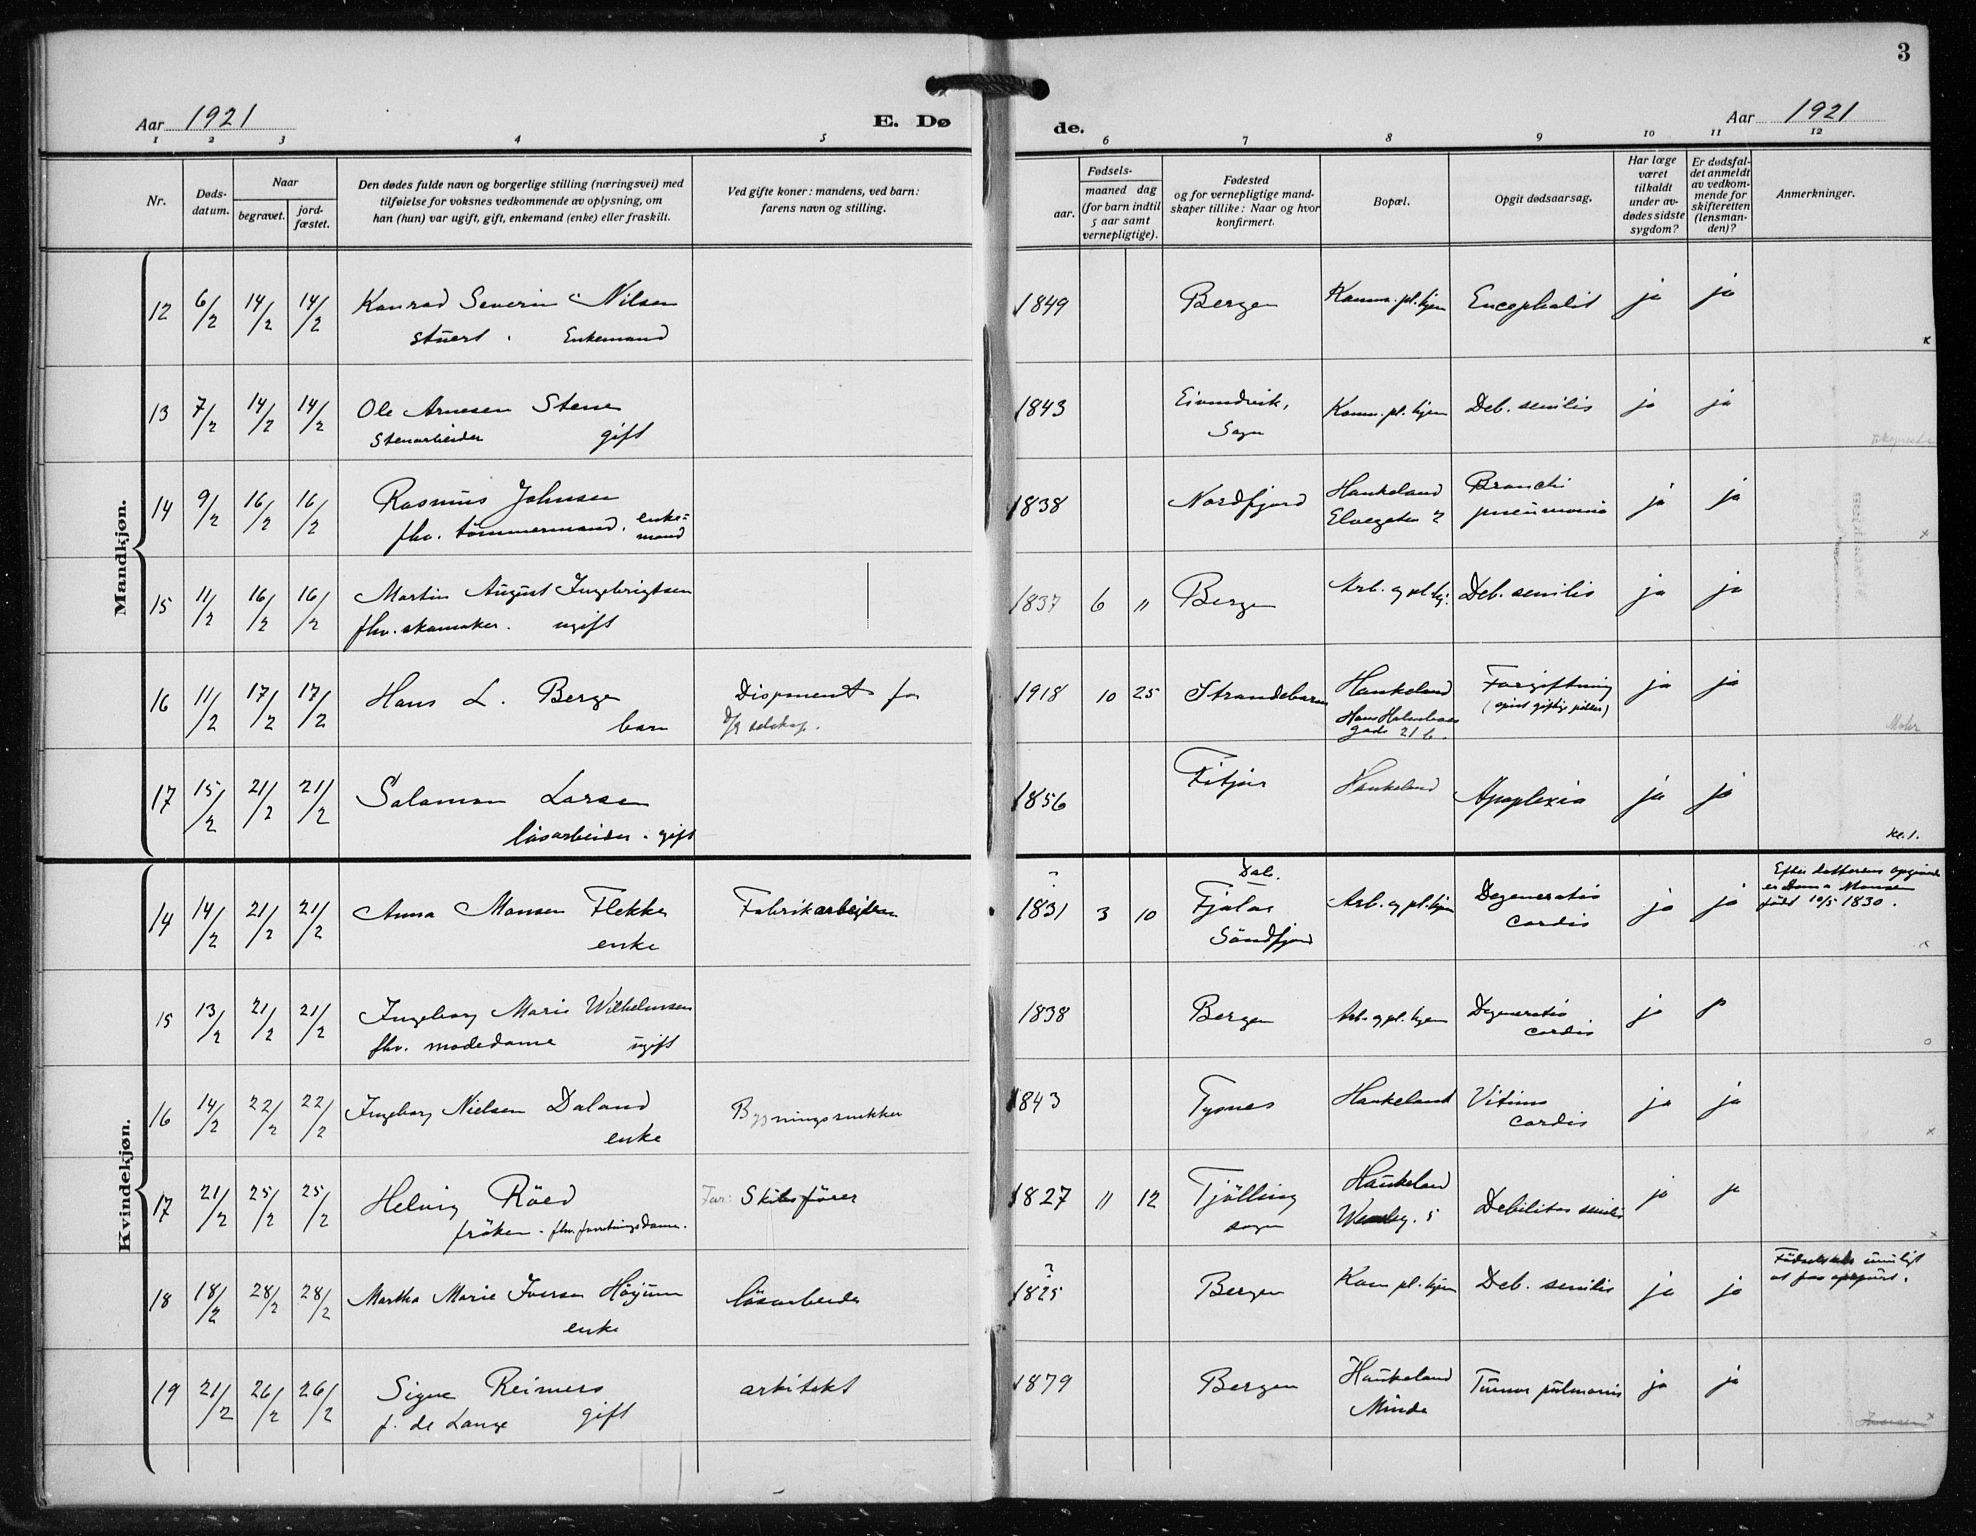 3
Aar 1921
E. Dø
de.
Aar 1921
1 2 3 4 5 6 7 8 9 10 11 12
Nr.
Døds-
datum.
Naar
begravet.
jord-
fæstet.
Den dødes fulde navn og borgerlige stilling (næringsvei) med
tilføielse for voksnes vedkommende av oplysning, om
han (hun) var ugift, gift, enkemand (enke) eller fraskilt.
Ved gifte koner: mandens, ved barn:
farens navn og stilling.
Fødsels-
aar.
maaned dag
(for barn indtil
5 aar samt
vernepligtige).
Fødested
og for vernepligtige mand-
skaper tillike: Naar og hvor
konfirmert.
Bopæl.
Opgit dødsaarsag.
Har læge
været
tilkaldt
under av-
dødes sidste
sygdom?
Er dødsfal-
det anmeldt
av vedkom-
mende for
skifteretten
(lensman-
den)?
Anmerkninger.
Mandkjøn.
12 6/2 14/2 14/2 Konrad Severin Nilsen 1849 Bergen Komm. pl. hjem Encephalit ja ja
stuert. Enkemand
13 7/2 14/2 14/2 Ole Arnesen Stene 1843 Eivindvik, Komm. pl. hjem Deb. senilis ja ja
Stenarbeider gift Sogn
14 9/2 16/2 16/2 Rasmus Johnsen 1838 Nordfjord Haukeland Bronchi ja ja
fhv. tömmermand. enke=
mand Elvegaten 2 pneumonia
x
15 11/2 16/2 16/2 Martin August Ingebrigtsen 1837 6 11 Bergen Arb. og pl. hj. Deb. senilis ja ja
fhv. skomaker. ugift
16 11/2 17/2 17/2 Hans L. Berge Disponent for 1918 10 25 Strandebarm Haukeland Forgiftning ja ja
barn D/S selskap. Hans Holmboes (spist giftige piller)
gade 21 b. Mohr
17 15/2 21/2 21/2 Salamon Larsen 1856 Fitjar Haukeland Apoplexia ja ja
lösarbeider. gift kl. 1.
Kvindekjøn.
14 14/2 21/2 21/2 Anna Monsen Flekke Fabrikarbeider ? 1831 3 10 Dale. Fjaler Arb. og pl. hjem Degeneratio ja ja Efter datterens opgivende
enke Söndfjord cordis er Anna Monsen
født 10/5 1830.
15 13/2 21/2 21/2 Ingeborg Marie Wilhelmsen 1838 Bergen Arb. og pl. hjem Degeneratio ja ja
fhv. modedame ugift cordis
16 14/2 22/2 22/2 Ingeborg Nielsen Daland Bygningssnekker 1843 Tysnes Haukeland Vitium ja ja
enke cordis x
17 21/2 25/2 25/2 Helvig Röed Far: Skibsfører 1827 11 12 Tjölling Haukeland Debilitas senilis ja ja
fröken. fhv. forretningsdame. sogn 5 x
18 18/2 28/2 28/2 Martha Marie Iversen Höyum lösarbeider ? 1825 Bergen Kom pl. hjem Deb. senilis ja ja Födselsdato umuligt
enke at faa opspurt.
19 21/2 26/2 26/2 Signe Reimers arkitekt 1879 Bergen Haukeland Tumor pulmonis ja ja
f. de Lange gift Minde x